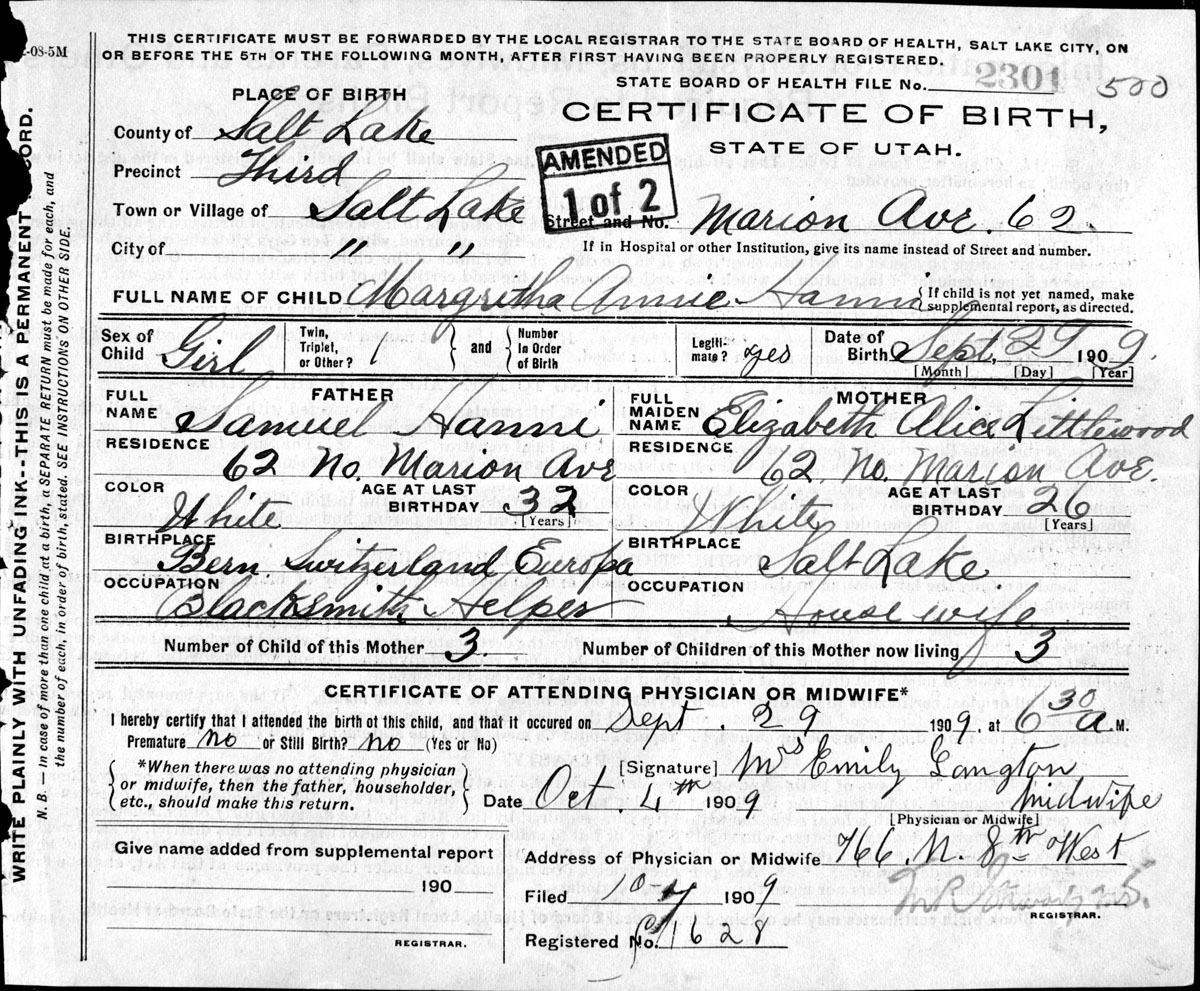 -08-5M
THIS CERTIFICATE MUST BE FORWARDED BY THE LOCAL REGISTRAR TO THE STATE BOARD OF HEALTH, SALT LAKE CITY, ON
OR BEFORE THE 5TH OF THE FOLLOWING MONTH, AFTER FIRST HAVING BEEN PROPERLY REGISTERED.
STATE BOARD OF HEALTH FILE No. 2301 500
PLACE OF BIRTH
CERTIFICATE OF BIRTH,
STATE OF UTAH.
County of Salt Lake
Precinct Third
AMENDED
1 of 2
Town or Village of Salt Lake Street and No. Marion Ave. 62.
City of " "
If in Hospital or other Institution, give its name instead of Street and number.
FULL NAME OF CHILD Margretha Annie Hanni { If child is not yet named, make
supplemental report, as directed.
Sex of Child Girl Twin, Triplet, or Other? 1 } and { Number In Order of Birth Legiti- mate? yes Date of Birth Sept, 29 1909.
[Month] [Day] [Year]
FATHER MOTHER
FULL NAME Samuel Hanni FULL MAIDEN NAME Elizabeth Alice Littlewood
RESIDENCE 62 No. Marion Ave RESIDENCE 62. No. Marion Ave.
COLOR White AGE AT LAST BIRTHDAY 32 [Years] COLOR White AGE AT LAST BIRTHDAY 26 [Years]
BIRTHPLACE Bern Switzerland Europa BIRTHPLACE Salt Lake.
OCCUPATION Blacksmith Helper OCCUPATION House wife
Number of Child of this Mother 3. Number of Children of this Mother now living 3
CERTIFICATE OF ATTENDING PHYSICIAN OR MIDWIFE*
I hereby certify that I attended the birth of this child, and that it occured on Sept. 29 1909. at 6 30 a M.
Premature no or Still Birth? no (Yes or No)
*When there was no attending physician
or midwife, then the father, householder,
etc., should make this return.
[Signature] Mrs Emily Langton
Date Oct 4th 1909 midwife
[Physician or Midwife]
Give name added from supplemental report
190
REGISTRAR.
Address of Physician or Midwife 766. N. 8th West
Filed 1909
REGISTRAR.
Registered No. 1628
WRITE PLAINLY WITH UNFADING INK--THIS IS A PERMANENT CORD.
N. B. — In case of more than one child at a birth, a SEPARATE RETURN must be made for each, and
the number of each, in order of birth, stated. SEE INSTRUCTIONS ON OTHER SIDE.